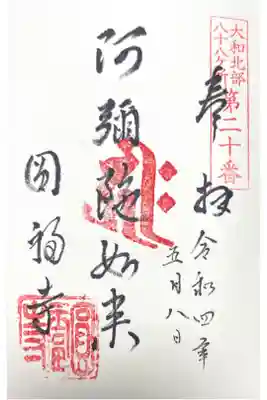 大和北部
八十八ヶ所
第二十番
奉拝
令和四年
五月八日
阿彌陀如来
圓福寺